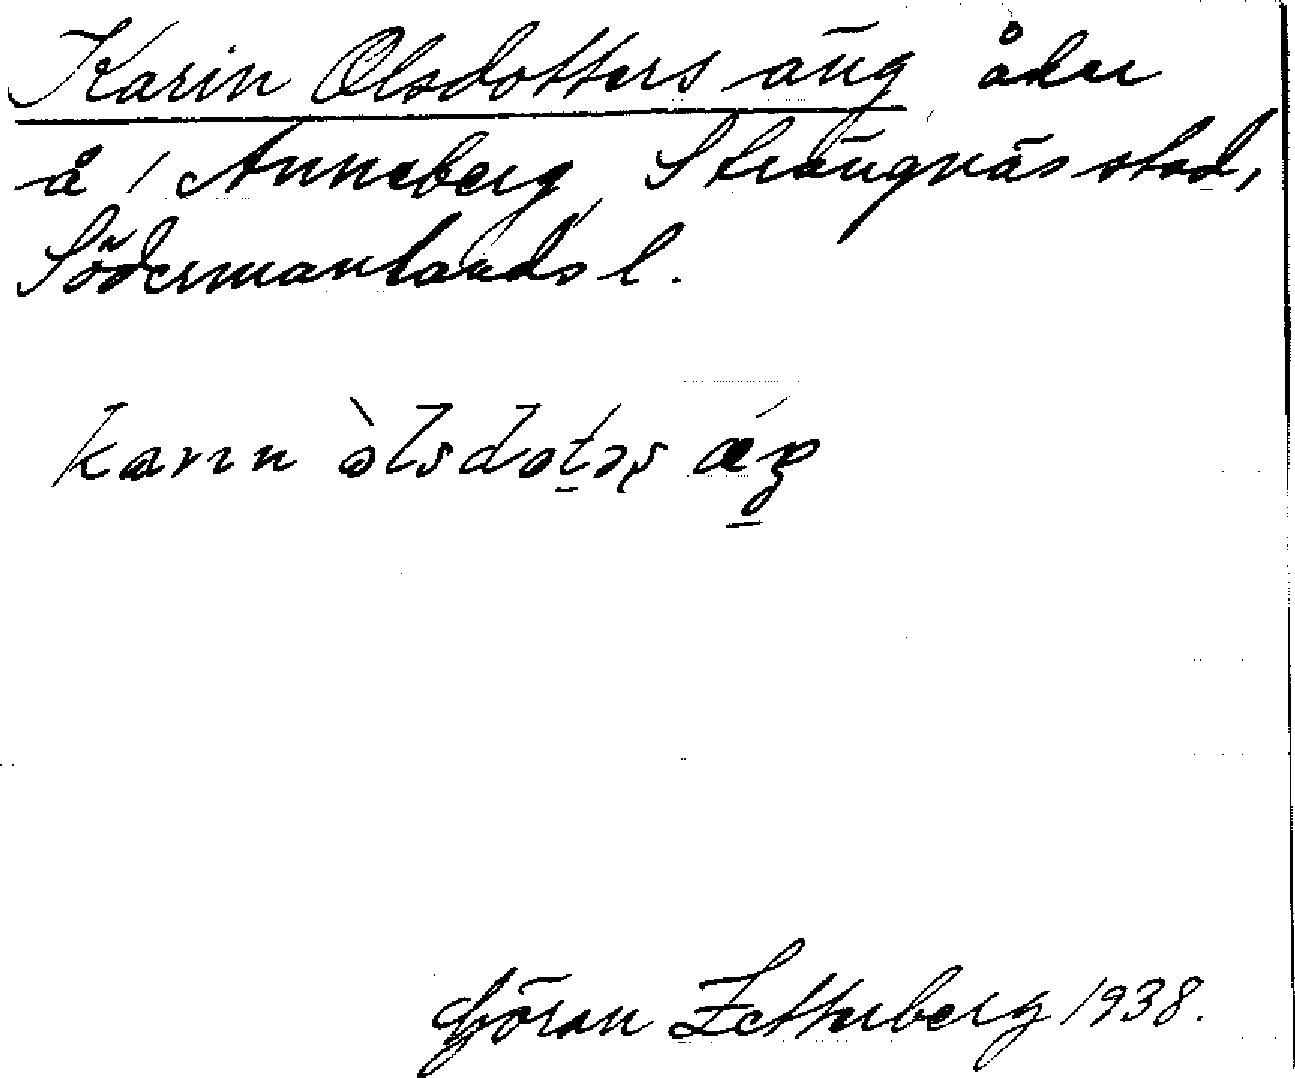 Karin Olsdotters äng åker
å / Anneberg, Strängnäs stad,
Södermanlands l.
karın òlsdotəṣ ǽŋ
Göran Zetterberg 1938.